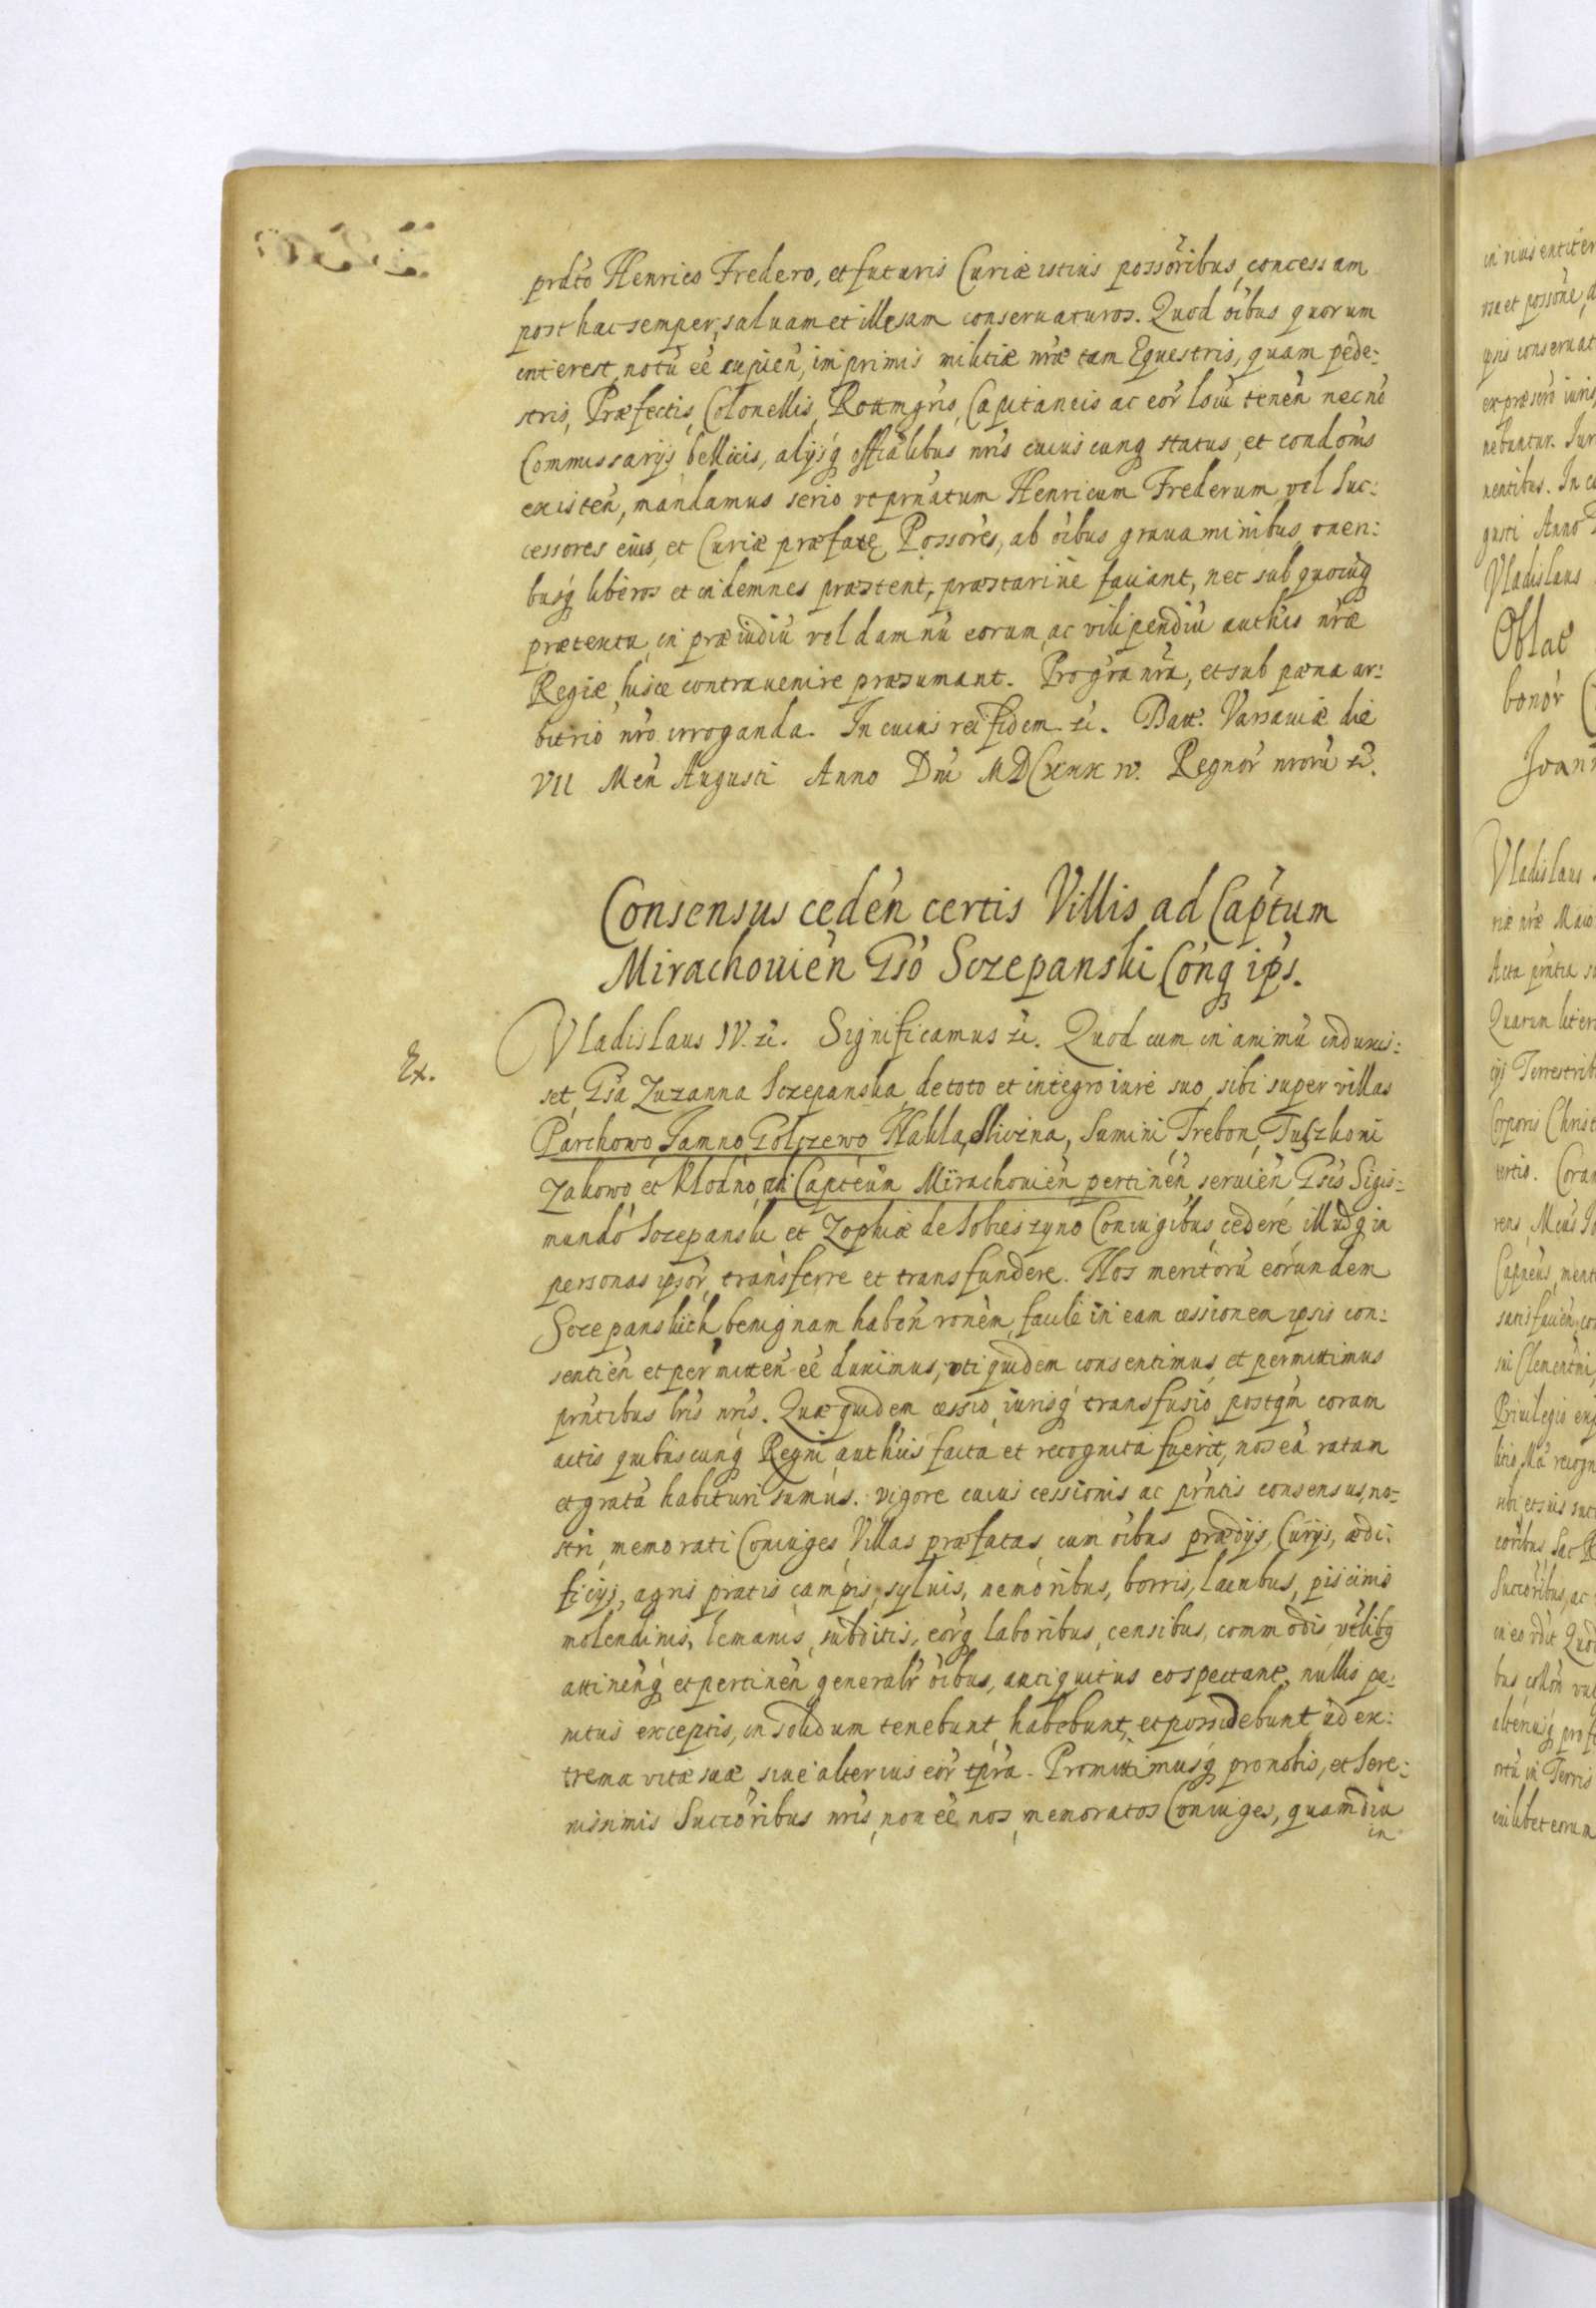 prdto Henrico Fredero, et futuris Curiæ istius possoribus, concessam
post hac semper, saluam et illesam conseruaturos. Quod oibus quorum
interest, notu eé cupien, imprimis militiæ nræ tam Equestris, quam pede:
stris, Præfectis, Colonellis, Rottmgris, Capitaneis ac eor locu tenen necno
Commissarijs bellicis, alijsq officialibus nris cuiuscunq status, et condonis
existen, mandamus serio vt prnatum Henricum Frederum vel Suc:
cessores eius, et Curiæ præfatę Possores, ab oibus grauaminibus, oneri:
busq liberos et indemnes præstent, præstariue faciant, nec sub quocuq
prætextu, in præiudiu vel damnu eorum, ac vilipendiu authis nræ
Regiæ, hisce contrauenire præsumant. Pro gra nra, et sub poena ar:
bitrio nro irroganda. In cuius rei fidem zc. Datt. Varsauiæ die
VII Men Augusti Anno Dni MDCxxxiv. Regnor nroru zc.
Consensus ceden certis Villis ad Captum
Mirachouien Gso Sczepanski Conq ips.
Ex.
Vladislaus IV. zc. Significamus zc. Quod cum in animu induxis:
set, Gsa Zuzanna Sczepanska, de toto et integro iure suo, sibi super villas
Parchowo, Jamno, Golczewo, Nakla, Sliwina, Sumini, Trebon, Tuszkoni
Zakowo et Klodno, ad Capteun Mirachouien pertinen, seruien Gsis Sigis:
mundo Sczepanski et Zophiæ de Sobieszyno Coniugibus, cedere, illudq in
personas ipsor, transferre et transfundere. Nos meritoru eorundem
Sczepanskich, benignam haben ronem, facile in eam cessionem ipsis con:
sentien et permitten eé duximus, vti quidem consentimus, et permittimus
prntibus lris nris. Quæ quidem cessio, iurisq transfusio, postqm coram
actis quibuscunq Regni, authcis facta et recognita fuerit, nos ea ratam
et grata habituri sumus. vigore cuius cessionis ac prntis consensus no:
stri, memorati Coniuges, Villas præfatas, cum oibus prædijs, Curijs, ædi:
ficijs, agris pratis campis, syluis, nemoribus, borris, lacubus, piscinis
molendinis, kmanis, subditis, eorq laboribus, censibus, commodis, vtlibq
attinenq et pertinen generalr oibus, antiquitus eo spectant, nullis pe:
nitus exceptis, in solidum tenebunt, habebunt, et possidebunt, ad ex:
trema vitæ suæ, siue alterius eor tpra. Promittimusq pro nobis, et Sere:
nissimis Succoribus nris, non eé nos, memoratos Coniuges, quamdiu
in